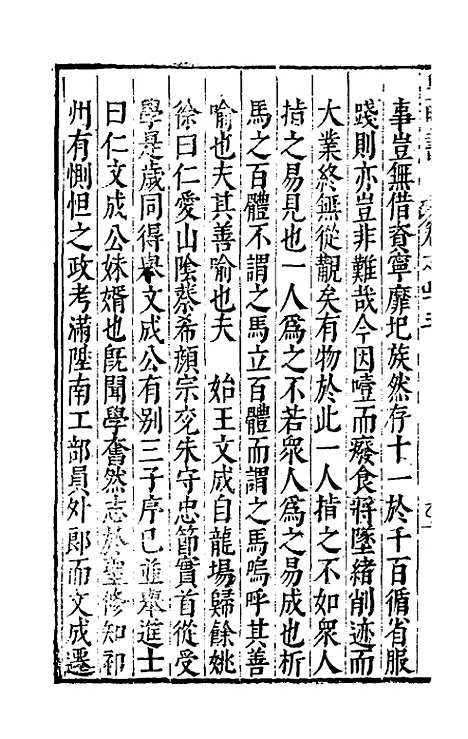 事豈無借資寧靡圯族然存十一於千百循省服
踐則亦豈非難哉今因噎而癈食將墜緒削迹而
大業終無從覩矣有物於此一人指之不如衆人
指之易見也一人爲之不若衆人爲之易成也析
馬之百體不謂之馬立百體而謂之馬嗚呼其善
喻也夫其善喻也夫　始王文成自龍場歸餘姚
徐曰仁愛山陰蔡希顔宗兖朱守忠節實首從受
學是歲同得舉文成公有别三子序已並舉進士
曰仁文成公妹婿也旣聞學奮然志於聖修知祁
州有惻怛之政考滿陞南工部員外郎而文成遷